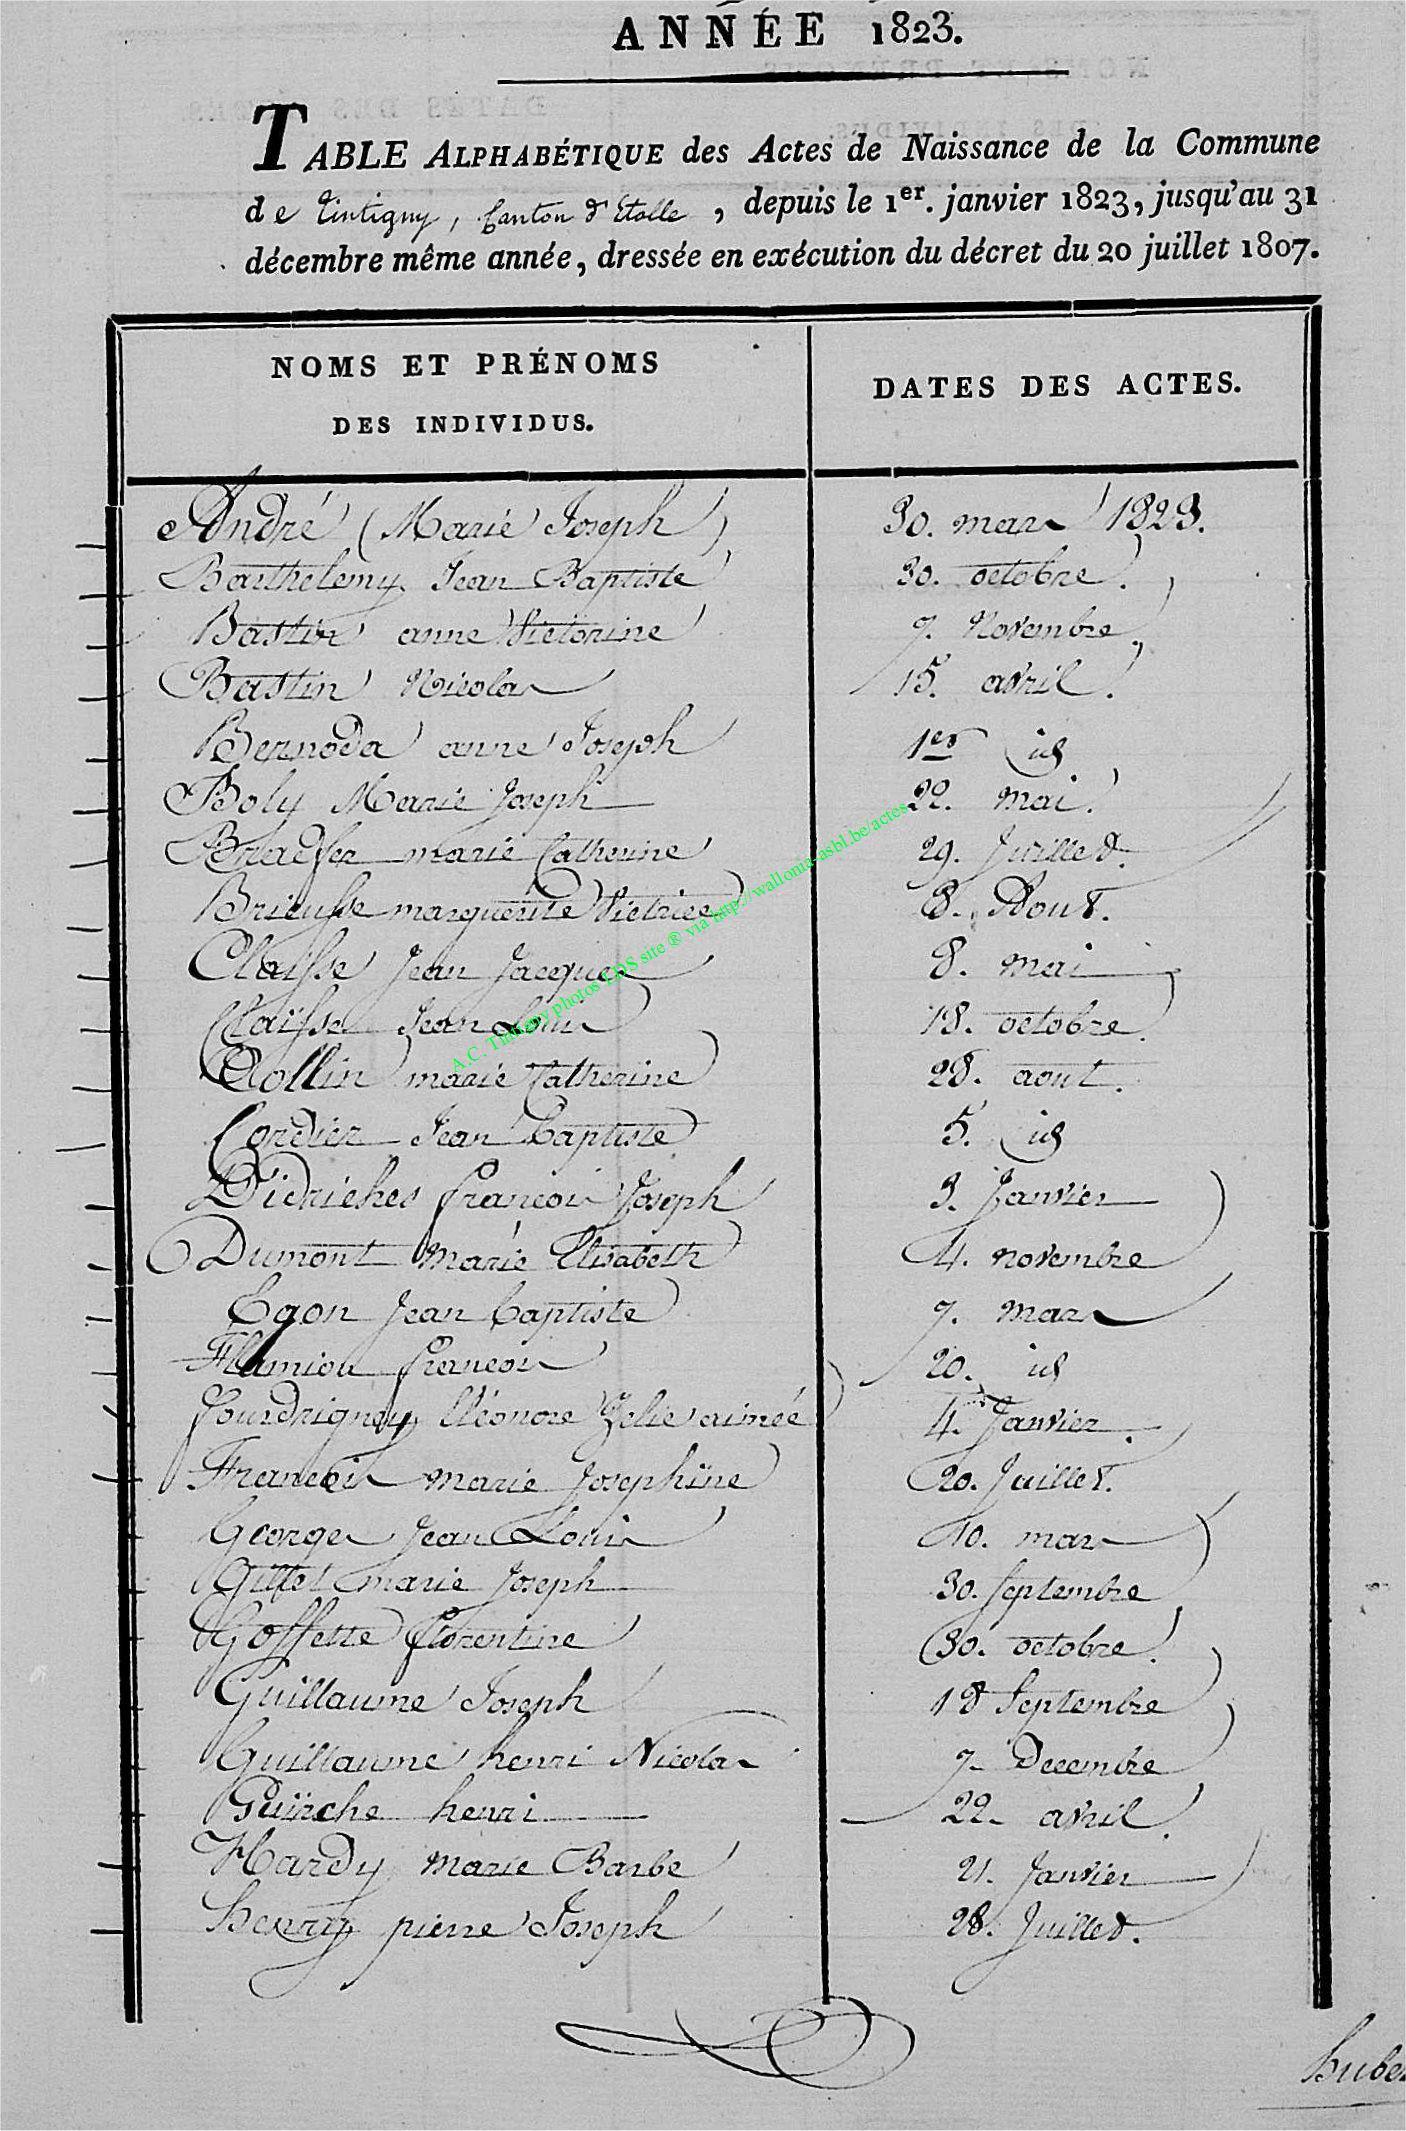 ANNÉE 1823.
TABLE ALPHABÉTIQUE des Actes de Naissance de la Commune
de Tintigny, Canton d'Etalle, depuis le 1er. janvier 1823, jusqu'au 31
décembre même année, dressée en exécution du décret du 20 juillet 1807.
NOMS ET PRÉNOMS
DES INDIVIDUS.
DATES DES ACTES.
André (Marie Joseph) 30. mars 1823.
Barthelemy Jean Baptiste 30. octobre.
Bastin anne Victorine 7. Novembre
Bastin Nicolas 15. avril.
Bernoda anne Joseph 1er id
Boly Marie Joseph 22. mai.
marie Catherine 29. Juillet.
Brieusse marguerite Victoire 8. Aout.
Claisse Jean Jacques 8. mai
Claisse Jean Louis 18. octobre
Collin marie Catherine 28. aout.
Cordier Jean baptiste 5. id
Didriches françois Joseph 3. Janvier
Dumont Marie Elisabeth 4. novembre
Egon Jean baptiste 7. mars
Flamion françois 20. id
Fourdrignoy Eléonore Zelie aimée 4. Janvier.
François marie Josephine 20. Juillet.
Georges Jean Louis 10. mars
Gillet marie Joseph 30. Septembre
Goffette florentine 30. octobre.
Guillaume Joseph 18 Septembre
Guillaume henri Nicolas 7- Decembre
Guirche henri 22- avril.
Hardy marie Barbe 21. Janvier
henry pierre Joseph 28. Juillet.
A.C. Tintigny photos LDS site ® via http://wallonia-asbl.be/actes